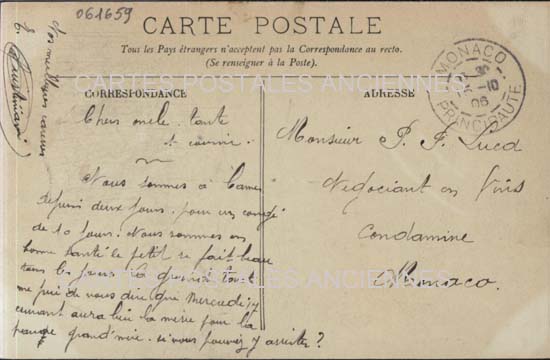 061659
CARTE POSTALE
Tous les Pays étrangers n'acceptent pas la Correspondance au recto.
(Se renseigner à la Poste).
MONACO
PRINCIPAUTÉ
CARTES POSTALES ANCIENNES
CORRESPONDANCE
ADRESSE
Chers oncle. tante
et cousin.
Nous sommes a
depuis deux jours. pour un congé
de 10 jours. Nous sommes en
bonne santé le petit se fait beau
tous les jours.
me prie de vous dire que Mercredi 17
courant aura lieu la messe pour la
pauvre grand'mère. si vous pouvez y assister?
Nos meilleures
Monsieur P. F.
Négociant en Vins
Condamine
Monaco.
CARTES POSTALES ANCIENNES